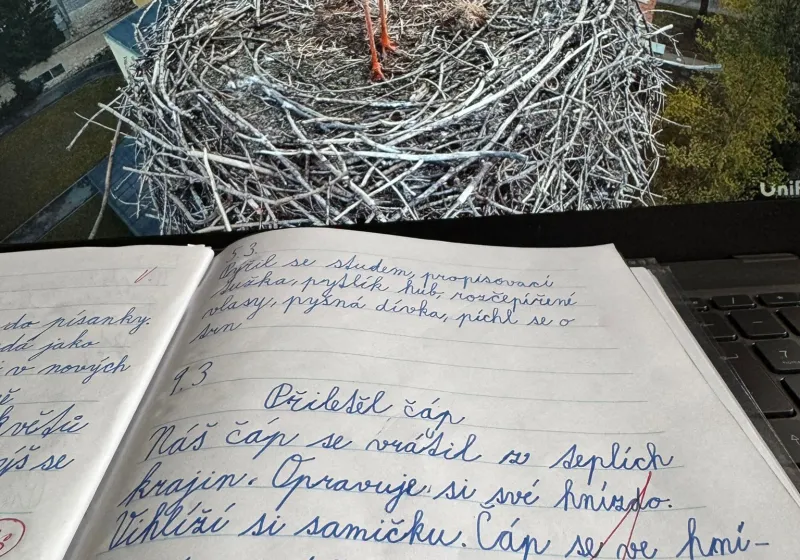 do písanky.
dá jako
i v nových
ě
k větů
ýš se
5. 3.
Pýřil se studem, propisovací
tužka, pytlík hub, rozčepířené
vlasy, pyšná dívka, píchl se o
trn
9. 3
Přiletěl čáp
Náš čáp se vrátil z teplích
krajin. Opravuje si své hnízdo.
Vihlíží si samičku. Čáp se ve hní-
UniF